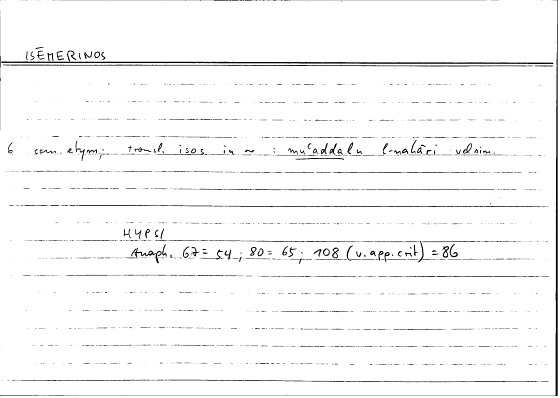 ISĒMERINOS
6 com. etym.; transl. isos in ~ : muʿaddalu l-nahāri vel sim.
HYPSI
Anaph. 67 = 54; 80 = 65; 108 (v. app. crit) = 86